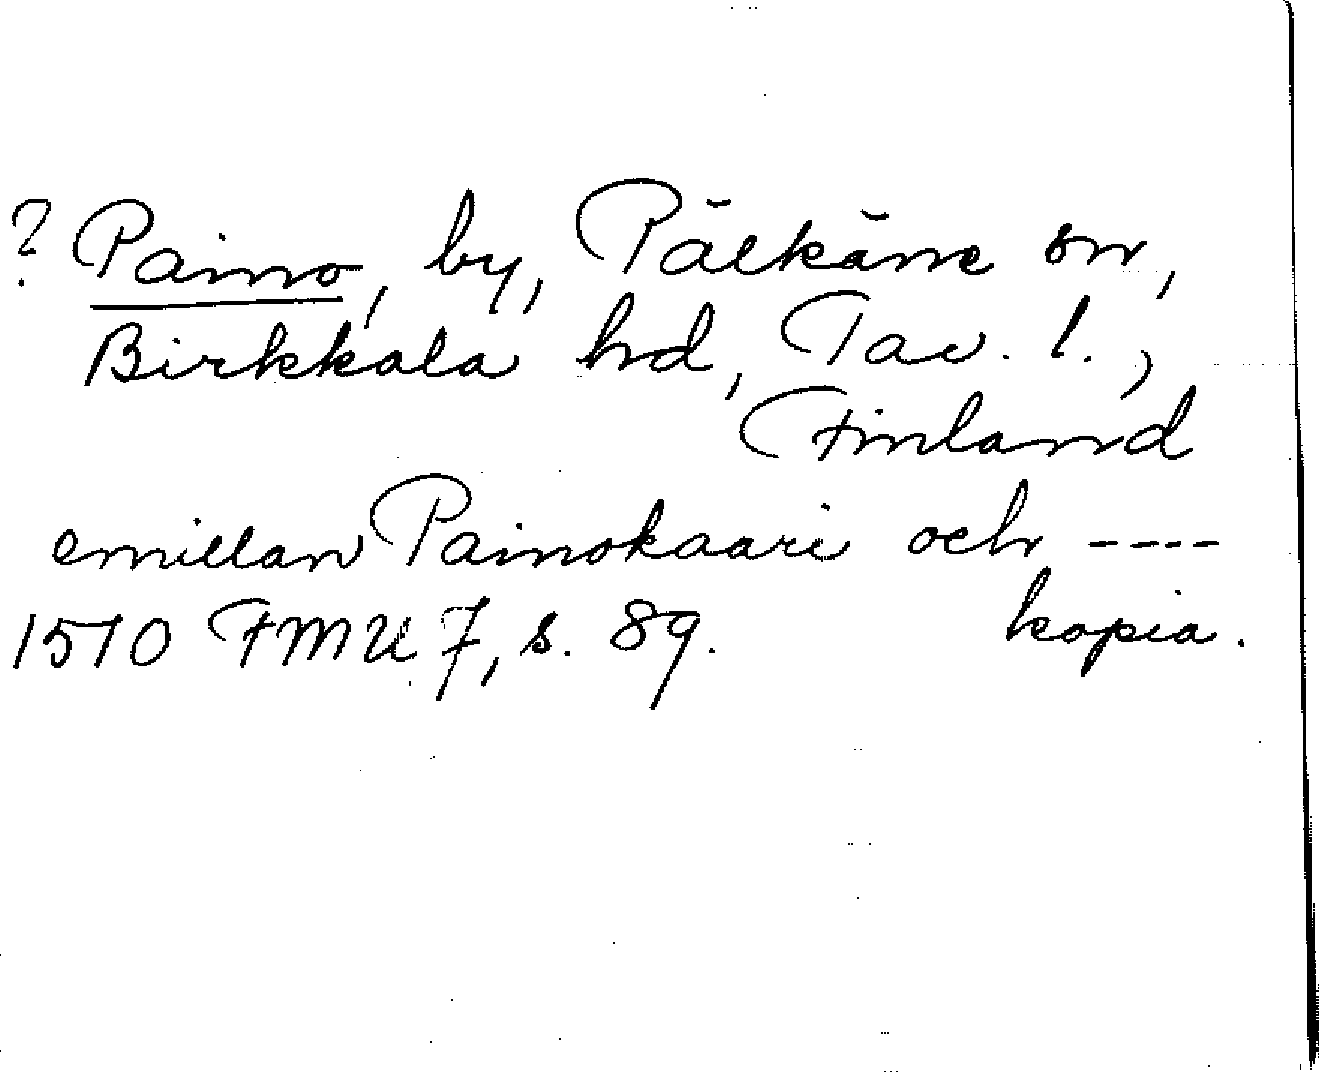 ? Paino, by, Pälkäne sn,
Birkkala hd, Tav. l.,
Finland
emillan Painokaari och ----
1510 FMU 7, s. 89. kopia.